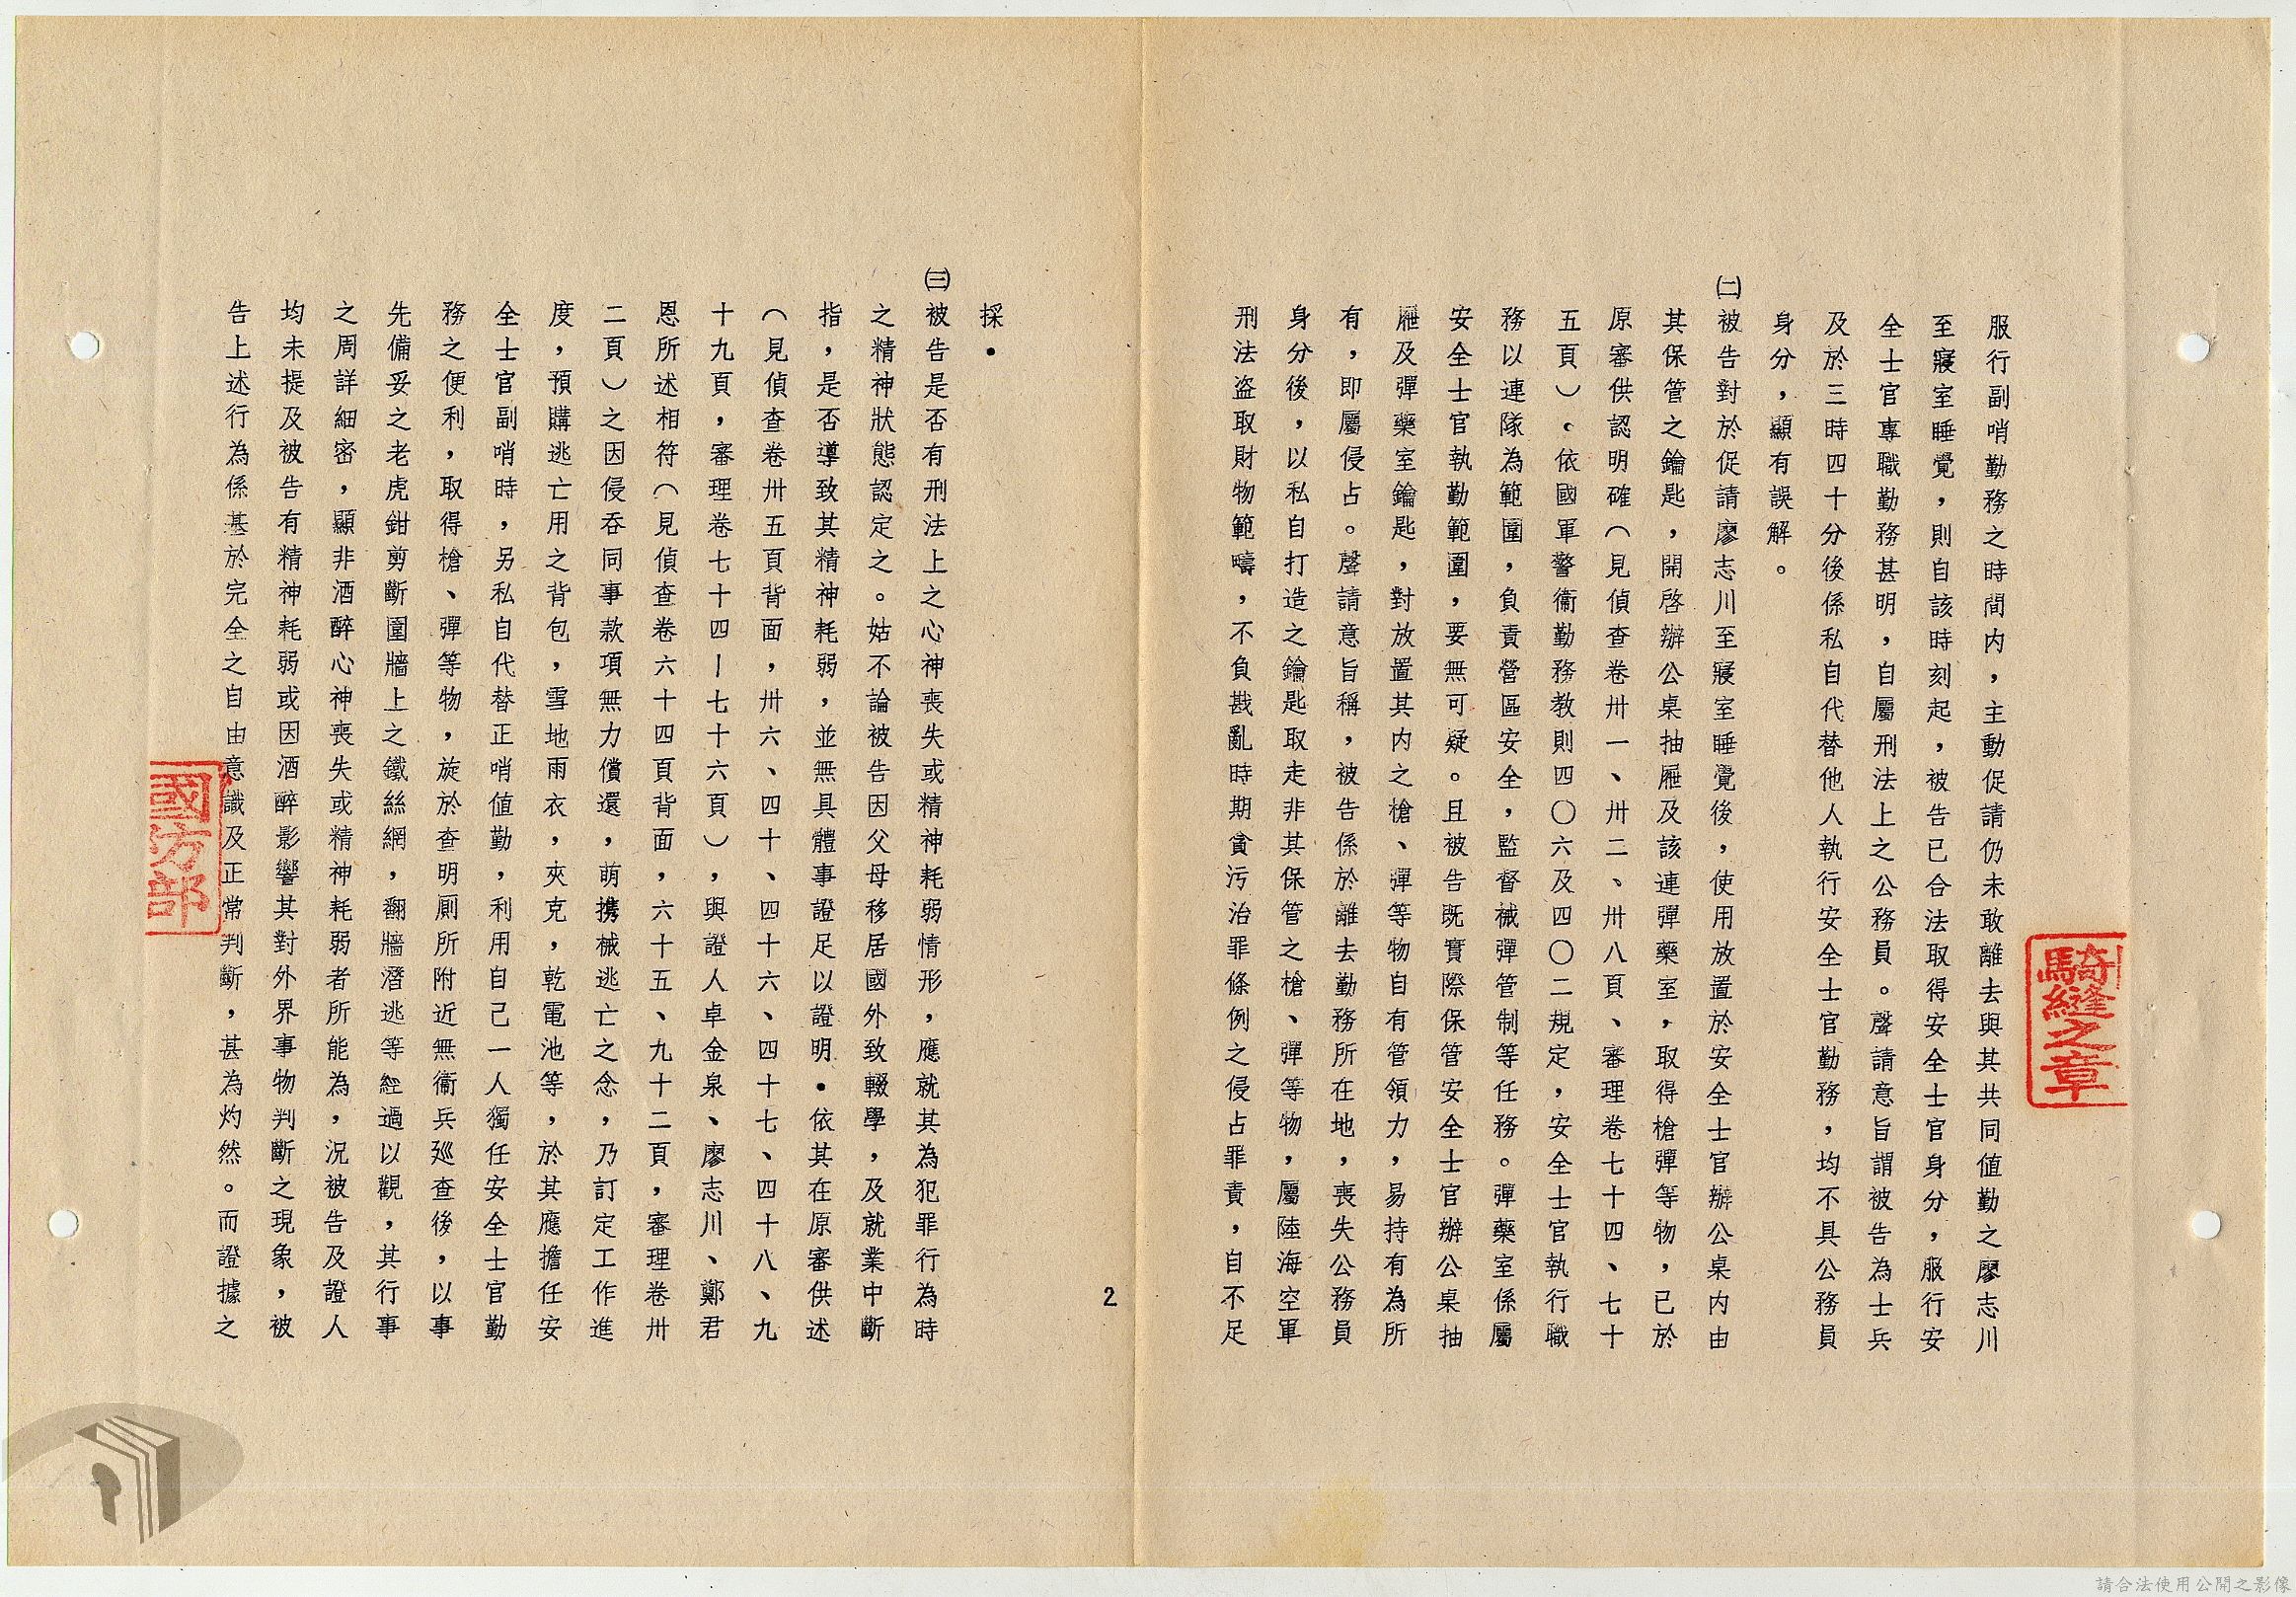 服行副哨勤務之時間內，主動促請仍未敢離去與其共同值勤之廖志川
至寢室睡覺，則自該時刻起，被告已合法取得安全士官身分，服行安
全士官專職勤務甚明，自屬刑法上之公務員。聲請意旨謂被告為士兵
及於三時四十分後係私自代替他人執行安全士官勤務，均不具公務員
身分，顯有誤解。
㈡被告對於促請廖志川至寢室睡覺後，使用放置於安全士官辦公桌內由
其保管之鑰匙，開啓辦公桌抽屜及該連彈藥室，取得槍彈等物，已於
原審供認明確（見偵查卷卅一、卅二、卅八頁、審理卷七十四、七十
五頁）。依國軍警衞勤務教則四〇六及四〇二規定，安全士官執行職
務以連隊為範圍，負責營區安全，監督械彈管制等任務。彈藥室係屬
安全士官執勤範圍，要無可疑。且被告既實際保管安全士官辦公桌抽
屜及彈藥室鑰匙，對放置其內之槍、彈等物自有管領力，易持有為所
有，即屬侵占。聲請意旨稱，被告係於離去勤務所在地，喪失公務員
身分後，以私自打造之鑰匙取走非其保管之槍、彈等物，屬陸海空軍
刑法盜取財物範疇，不負戡亂時期貪污治罪條例之侵占罪責，自不足
2
採．
㈢被告是否有刑法上之心神喪失或精神耗弱情形，應就其為犯罪行為時
之精神狀態認定之。姑不論被告因父母移居國外致輟學，及就業中斷
指，是否導致其精神耗弱，並無具體事證足以證明．依其在原審供述
（見偵查卷卅五頁背面，卅六、四十、四十六、四十七、四十八、九
十九頁，審理卷七十四—七十六頁），與證人卓金泉、廖志川、鄭君
恩所述相符（見偵查卷六十四頁背面，六十五、九十二頁，審理卷卅
二頁）之因侵吞同事款項無力償還，萌携械逃亡之念，乃訂定工作進
度，預購逃亡用之背包，雪地雨衣，夾克，乾電池等，於其應擔任安
全士官副哨時，另私自代替正哨值勤，利用自己一人獨任安全士官勤
務之便利，取得槍、彈等物，旋於查明厠所附近無衞兵廵查後，以事
先備妥之老虎鉗剪斷圍牆上之鐵絲網，翻牆潛逃等經過以觀，其行事
之周詳細密，顯非酒醉心神喪失或精神耗弱者所能為，況被告及證人
均未提及被告有精神耗弱或因酒醉影響其對外界事物判斷之現象，被
告上述行為係基於完全之自由意識及正常判斷，甚為灼然。而證據之
騎縫之章
國防部
請合法使用公開之影像